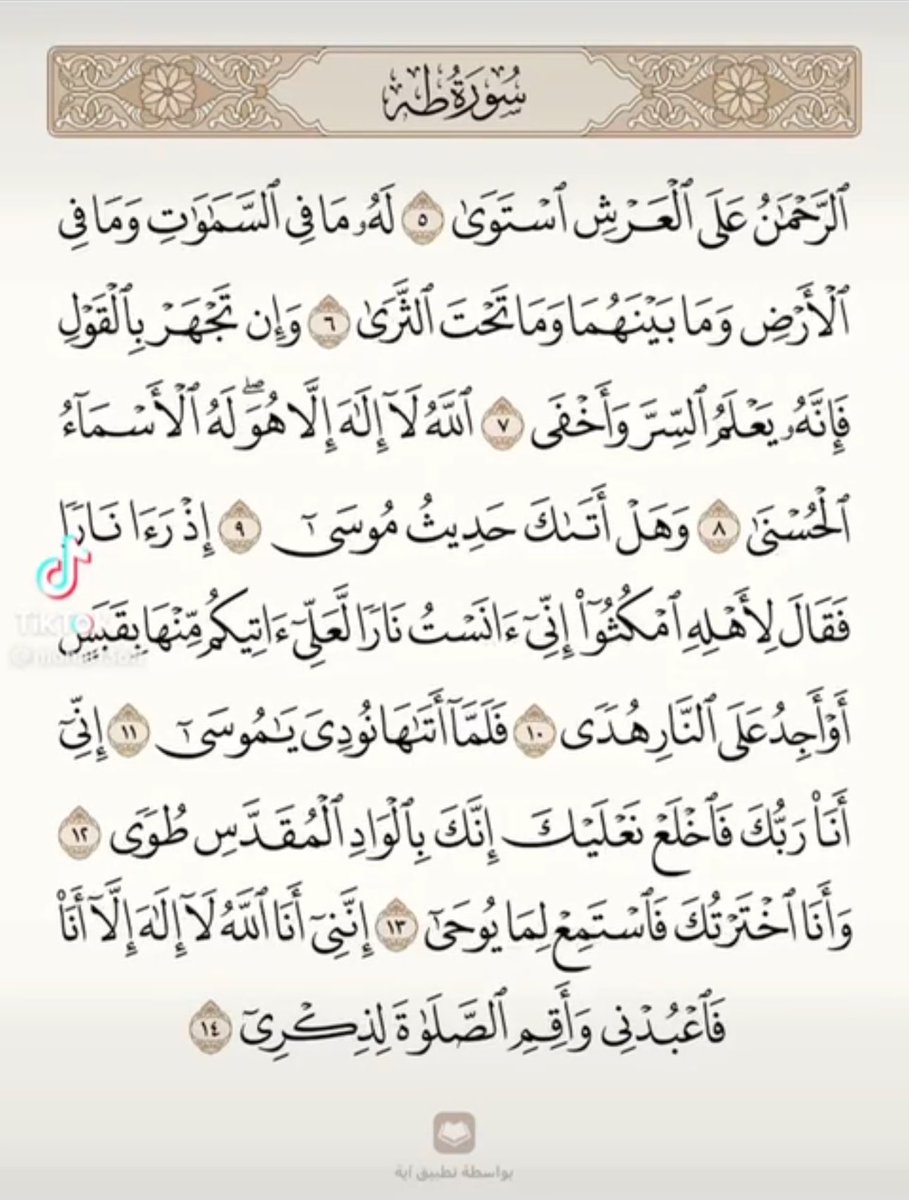 سُورَةُ طه
ٱلرَّحْمَٰنُ عَلَى ٱلْعَرْشِ ٱسْتَوَىٰ ٥ لَهُۥ مَا فِى ٱلسَّمَٰوَٰتِ وَمَا فِى
ٱلْأَرْضِ وَمَا بَيْنَهُمَا وَمَا تَحْتَ ٱلثَّرَىٰ ٦ وَإِن تَجْهَرْ بِٱلْقَوْلِ
فَإِنَّهُۥ يَعْلَمُ ٱلسِّرَّ وَأَخْفَى ٧ ٱللَّهُ لَآ إِلَٰهَ إِلَّا هُوَۖ لَهُ ٱلْأَسْمَآءُ
ٱلْحُسْنَىٰ ٨ وَهَلْ أَتَىٰكَ حَدِيثُ مُوسَىٰٓ ٩ إِذْ رَءَا نَارًا
فَقَالَ لِأَهْلِهِ ٱمْكُثُوٓا۟ إِنِّىٓ ءَانَسْتُ نَارًا لَّعَلِّىٓ ءَاتِيكُم مِّنْهَا بِقَبَسٍ
أَوْ أَجِدُ عَلَى ٱلنَّارِ هُدًى ١٠ فَلَمَّآ أَتَىٰهَا نُودِىَ يَٰمُوسَىٰٓ ١١ إِنِّىٓ
أَنَا۠ رَبُّكَ فَٱخْلَعْ نَعْلَيْكَ إِنَّكَ بِٱلْوَادِ ٱلْمُقَدَّسِ طُوًى ١٢
وَأَنَا ٱخْتَرْتُكَ فَٱسْتَمِعْ لِمَا يُوحَىٰٓ ١٣ إِنَّنِىٓ أَنَا ٱللَّهُ لَآ إِلَٰهَ إِلَّآ أَنَا۠
فَٱعْبُدْنِى وَأَقِمِ ٱلصَّلَوٰةَ لِذِكْرِىٓ ١٤
TikTok
بواسطة تطبيق آية